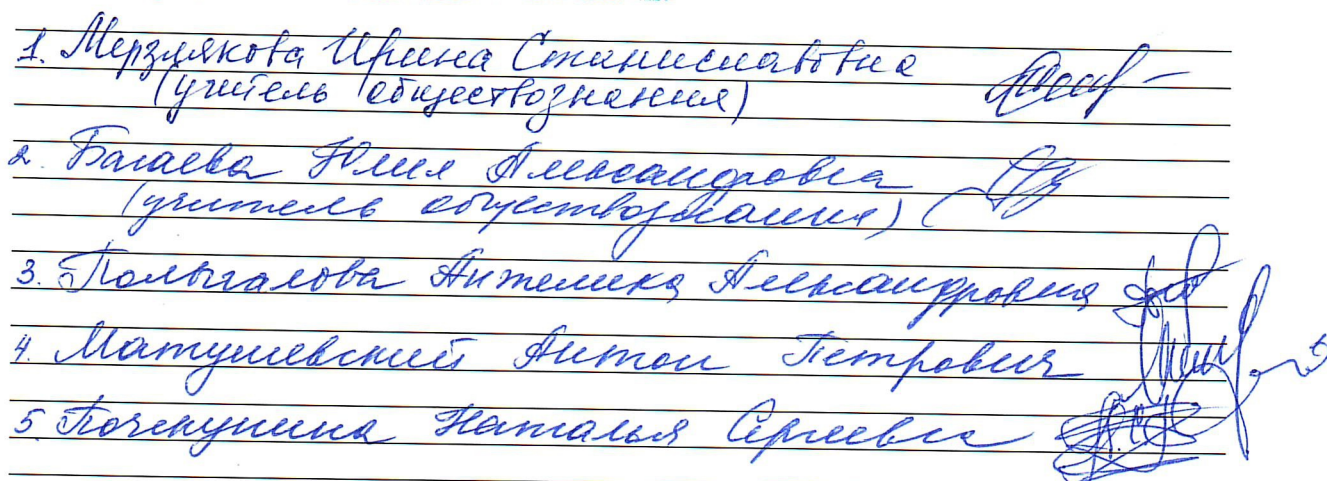 1. Мерзлякова Ирина Станиславовна
(учитель обществознания)
2. Багаева Юлия Александровна
(учитель обществознания)
3. Полыгалова Анжелика Александровна
4. Матушевский Антон Петрович
5. Наталья Сергеевна